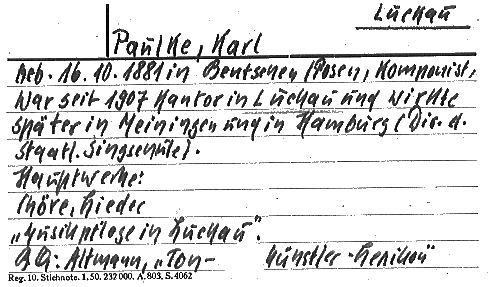 Luckau
Paulke, Karl
Geb. 16.10.1881 in Bentschen (Posen, Komponist,
war seit 1907 Kantor in Luckau und wirkte
später in Meiningen und in Hamburg (Dir. d.
Staatl. Singschule).
Hauptwerke:
Chöre, Lieder
„Musikpflege in Luckau".
Qu: Altmann, „Ton- künstler-Lexikon"
Reg. 10. Stichnote. 1, 50. 232000. A. 803. S. 4062